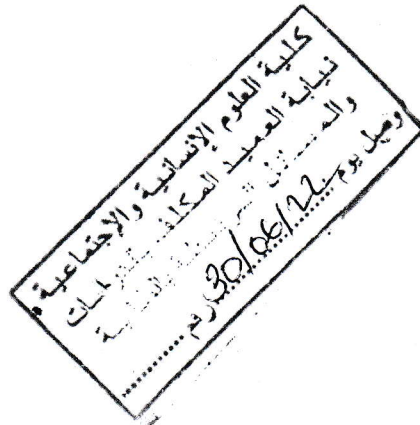 كلية العلوم الإنسانية والاجتماعية
نيابة العميد المكلف بالدراسات
والمسائل المرتبطة بالطلبة
وصل يوم 30/06/22 رقم